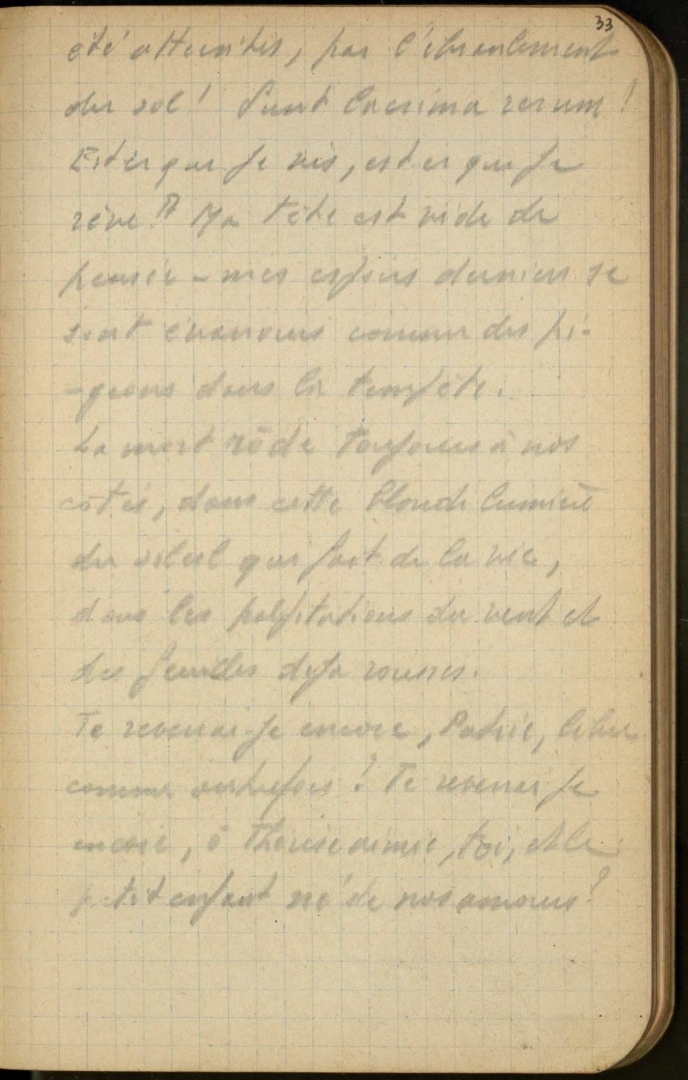 33
été atteintes, par l'ébranlement
du sol! Sunt lacrima rerum!
Est-ce que je vis, est-ce que je
rêve? Ma tête est vide de
pensée - mes espoirs derniers se
sont évanouis comme des pi-
-geons dans la tempête.
La mort rôde toujours à nos
côtés, dans cette blonde lumière
du soleil qui fait de la vie,
dans les palpitations du vent et
des feuilles déjà rousses.
Te reverrai-je encore, Patrie, libre
comme autrefois? Te reverrai je
encore, ô Thérèse aimée, toi, et le
petit enfant né de nos amours?